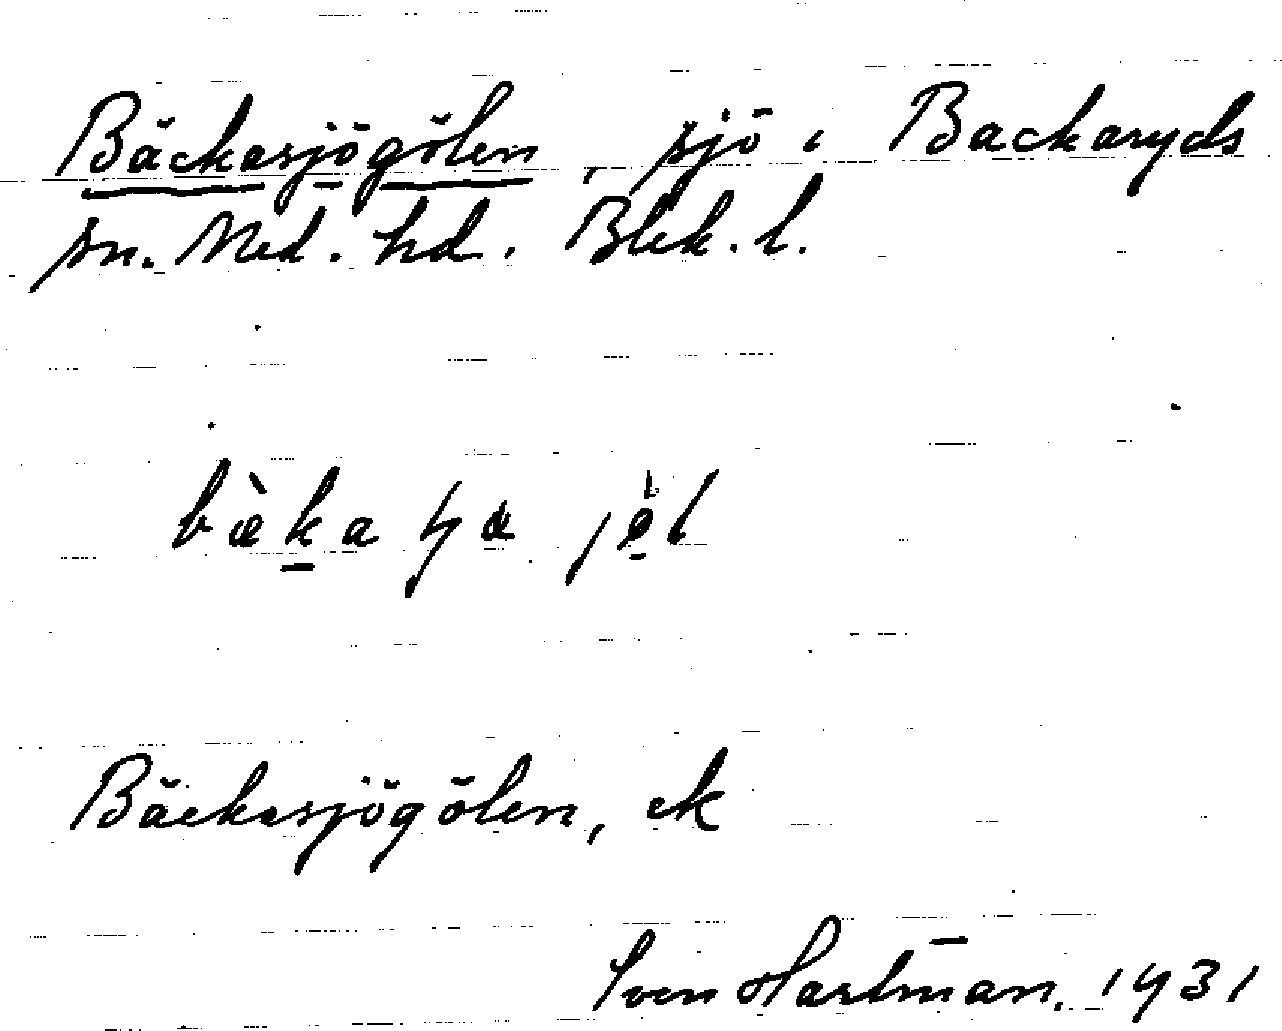 Bäckasjögölen, sjö i Backaryds
sn. Med. hd. Blek. l.
Bäckasjögölen, ek
Sven Hartman. 1931